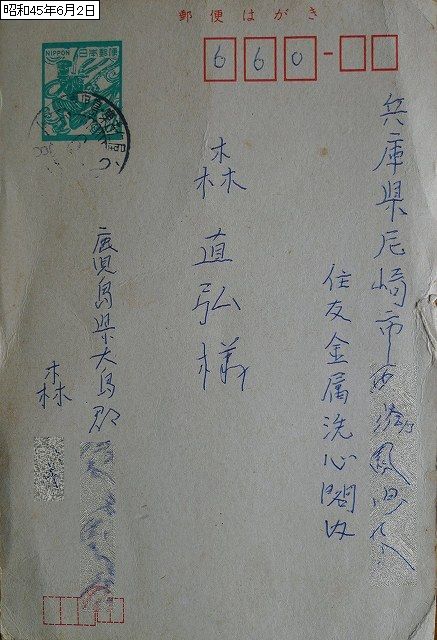 昭和45年6月2日
郵便はがき
NIPPON 日本郵便
660
兵庫県尼崎市
住友金属洗心閣内
森直弘様
鹿児島県大島郡
森